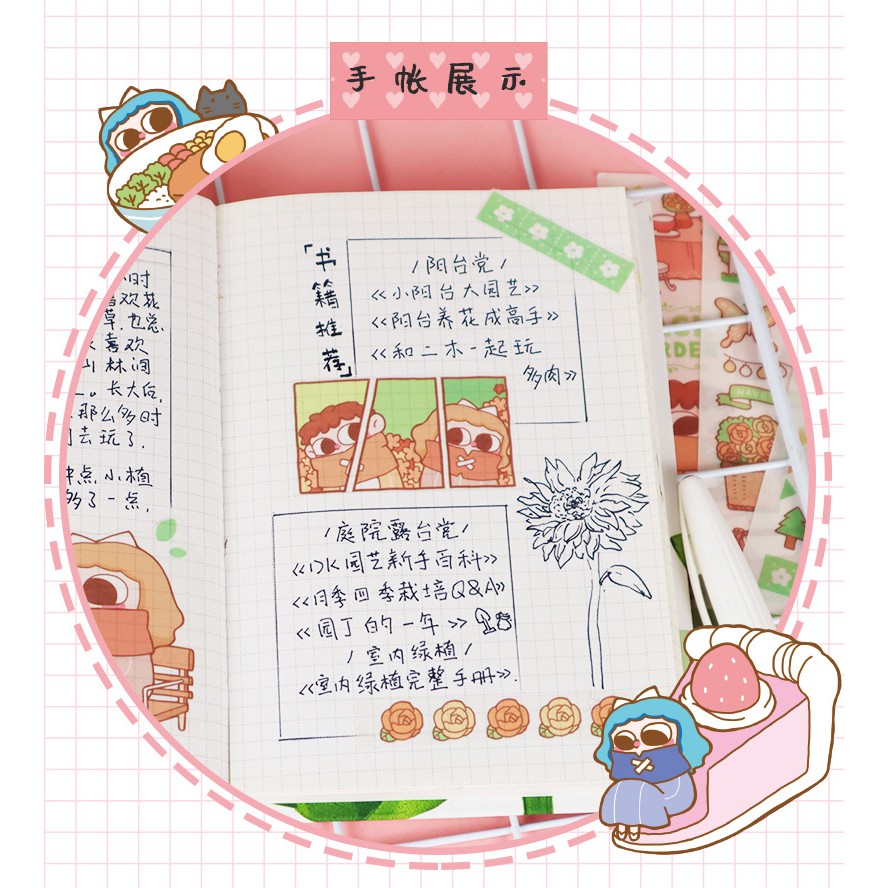 手帐展示
时
喜欢花
草,也总
喜欢
山林间
。长大后,
那么多时
去玩了.
点,小植
多了一点,
「书籍推荐」
/阳台党/
《小阳台大园艺》
《阳台养花成高手》
《和二木一起玩
多肉》
/庭院露台党/
《DK园艺新手百科》
《月季四季栽培Q&A》
《园丁的一年》
/室内绿植/
《室内绿植完整手册》.
RDEN